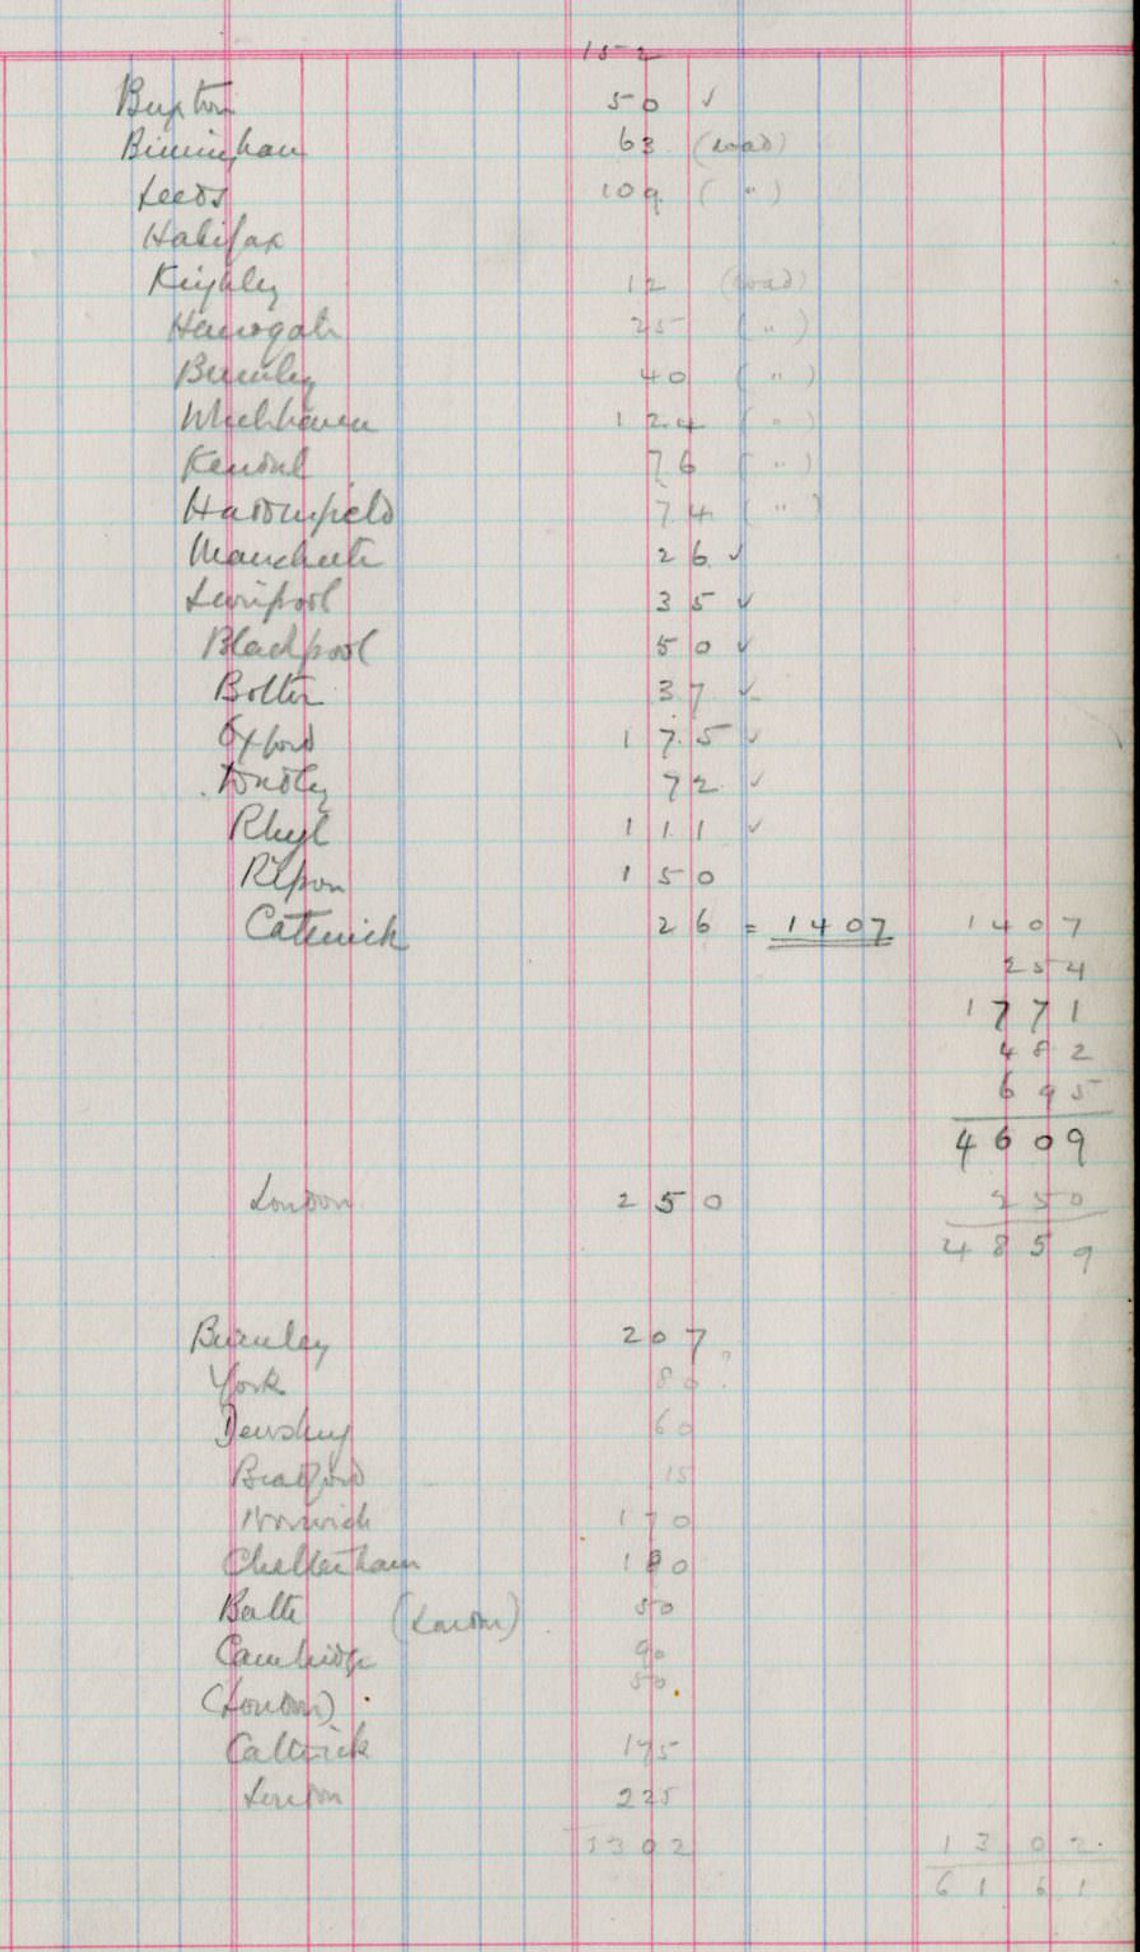 152
Buxton 50 ✓
Birmingham 63 (road)
Leeds 109 ( " )
Halifax
Keighley 12 (road)
Harrogate 25 ( " )
Burnley 40 ( " )
Whitehaven 124 ( " )
Kendal 76 ( " )
Huddersfield 74 ( " )
Manchester 26 ✓
Liverpool 35 ✓
Blackpool 50 ✓
Bolton 37 ✓
Oxford 175 ✓
Dudley 72 ✓
Rhyl 111 ✓
Ripon 150
Catterick 26 = 1407 1407
254
1771
482
695
4609
London 250 250
4859
Burnley 207
York 80
Dewsbury 60
Bradford 15
Norwich 170
Cheltenham 180
Bath (London) 50
Cambridge 90
(London) 50
Catterick 175
London 225
1302 1302
6161